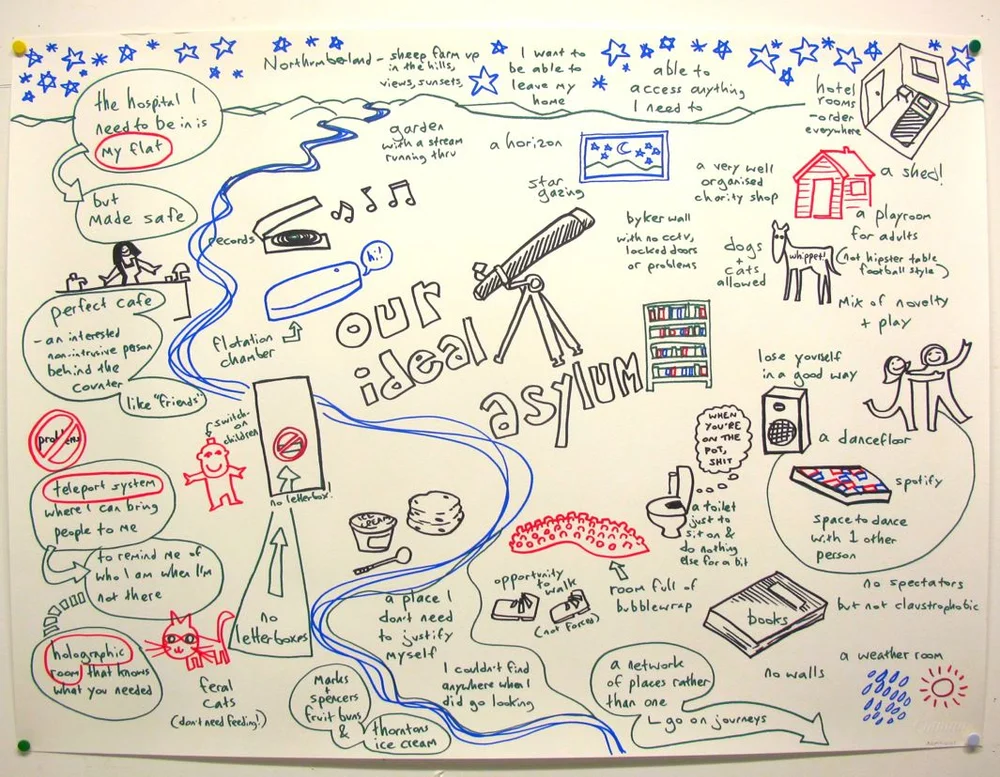 Northumberland - sheep farm up
in the hills,
views, sunsets,
I want to
be able to
leave my
home
able to
access anything
I need to
hotel
rooms
- order
everywhere
the hospital I
need to be in is
my flat
but
made safe
garden
with a stream
running thru
a horizon
star
gazing
a very well
organised
charity shop
a shed!
a playroom
for adults
(not hipster table
football style)
Mix of novelty
+ play
byker wall
with no cctv,
locked doors
or problems
dogs
+
cats
allowed
whippet!
records
hi!!
flotation
chamber
our
ideal
asylum
perfect cafe
- an interested
non-intrusive person
behind the
counter
like "friends"
lose yourself
in a good way
a dancefloor
spotify
space to dance
with 1 other
person
WHEN
YOU'RE
ON THE
POT,
SHIT
a toilet
just to
sit on &
do nothing
else for a bit
problems
switch-
on
children
no letterbox!
no
letterboxes
teleport system
where I can bring
people to me
to remind me of
who I am when I'm
not there
holographic
room that knows
what you needed
feral
cats
(don't need feeding!)
ICE
CREAM
Marks
+
spencers
fruit buns
&
thorntons
ice cream
a place I
don't need
to justify
myself
opportunity
to walk
(not forced)
room full of
bubblewrap
books
no spectators
but not claustrophobic
I couldn't find
anywhere when I
did go looking
a network
of places rather
than one
go on journeys
no walls
a weather room